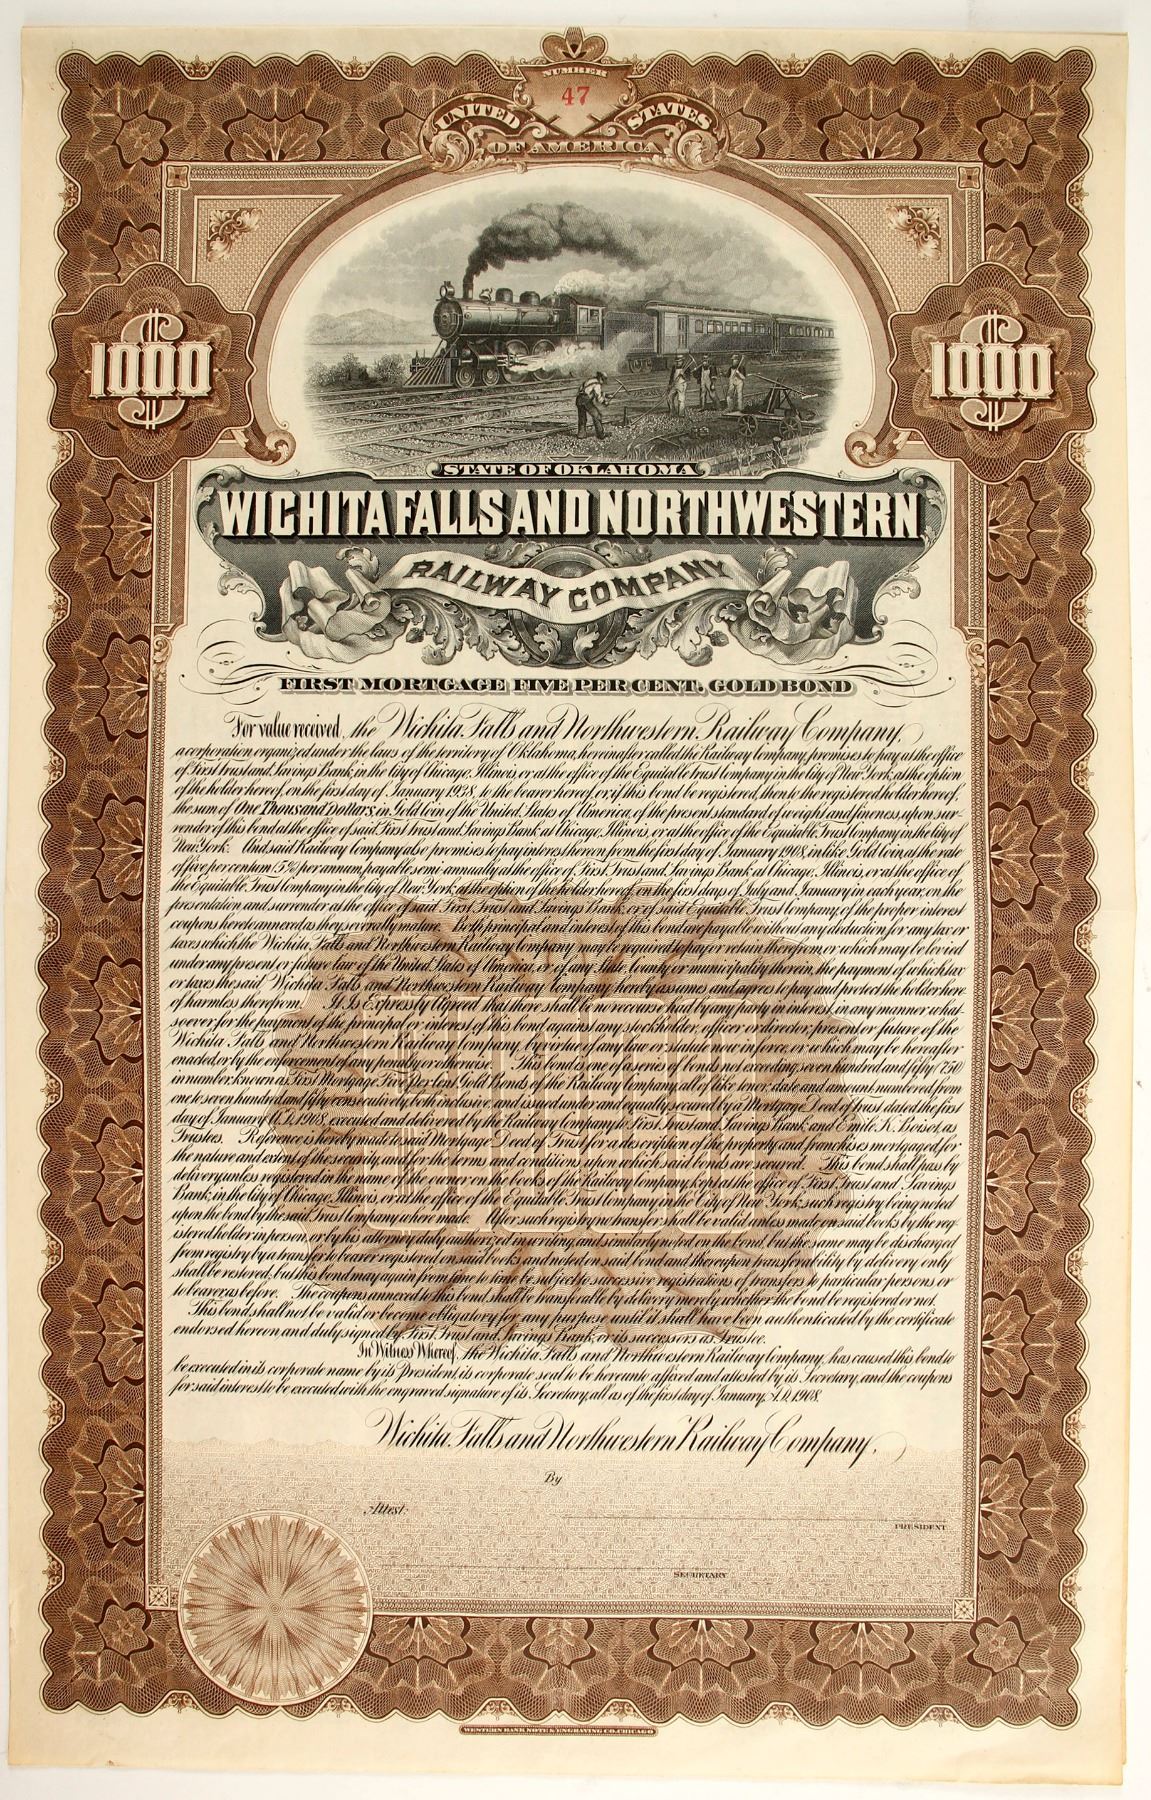 NUMBER
47
UNITED STATES
OF AMERICA
$1000 $1000
STATE OF OKLAHOMA
WICHITA FALLS AND NORTHWESTERN
RAILWAY COMPANY
FIRST MORTGAGE FIVE PER CENT. GOLD BOND
For value received, the Wichita Falls and Northwestern Railway Company,
a corporation organized under the laws of the territory of Oklahoma, hereinafter called the Railway Company, promises to pay at the office
of First Trust and Savings Bank, in the City of Chicago, Illinois, or at the office of the Equitable Trust Company in the City of New York, at the option
of the holder hereof, on the first day of January 1938, to the bearer hereof, or if this bond be registered, then to the registered holder hereof,
the sum of One Thousand Dollars, in Gold Coin of the United States of America, of the present standard of weight and fineness, upon sur-
render of this bond at the office of said First Trust and Savings Bank at Chicago, Illinois, or at the office of the Equitable Trust Company in the City of
New York. And said Railway Company also promises to pay interest hereon from the first day of January 1908, in like Gold Coin, at the rate
of five per centum (5%) per annum, payable semi-annually at the office of First Trust and Savings Bank at Chicago, Illinois, or at the office of
the Equitable Trust Company in the City of New York, at the option of the holder hereof, on the first days of July and January in each year, on the
presentation and surrender at the office of said First Trust and Savings Bank, or of said Equitable Trust Company, of the proper interest
coupons hereto annexed as they severally mature. Both principal and interest of this bond are payable without any deduction for any tax or
taxes which the Wichita Falls and Northwestern Railway Company may be required to pay or retain therefrom or which may be levied
under any present or future law of the United States of America, or of any State, County or municipality therein, the payment of which tax
or taxes the said Wichita Falls and Northwestern Railway Company hereby assumes and agrees to pay and protect the holder here
of harmless therefrom. It Is Expressly Agreed that there shall be no recourse had by any party in interest, in any manner what-
soever for the payment of the principal or interest of this bond against any stockholder, officer or director, present or future of the
Wichita Falls and Northwestern Railway Company, by virtue of any law or statute now in force, or which may be hereafter
enacted or by the enforcement of any penalty or otherwise. This bond is one of a series of bonds not exceeding seven hundred and fifty (750)
in number, known as First Mortgage Five Per Cent Gold Bonds of the Railway Company, all of like tenor, date and amount numbered from
one to seven hundred and fifty consecutively, both inclusive, and issued under and equally secured by a Mortgage Deed of Trust dated the first
day of January A.D. 1908, executed and delivered by the Railway Company to First Trust and Savings Bank and Emile K. Boisot, as
Trustees. Reference is hereby made to said Mortgage Deed of Trust for a description of the property and franchises mortgaged, for
the nature and extent of the security, and for the terms and conditions upon which said bonds are secured. This bond shall pass by
delivery, unless registered in the name of the owner on the books of the Railway Company, kept at the office of First Trust and Savings
Bank, in the City of Chicago, Illinois, or at the office of the Equitable Trust Company in the City of New York, such registry being noted
upon the bond by the said Trust Company where made. After such registry no transfer shall be valid unless made on said books by the reg-
istered holder in person, or by his attorney duly authorized in writing, and similarly noted on the bond, but the same may be discharged
from registry by a transfer to bearer registered on said books and noted on said bond and thereupon transferability by delivery only
shall be restored, but this bond may again from time to time be subject to successive registrations of transfers to particular persons or
to bearer as before. The coupons annexed to this bond, shall be transferable by delivery merely, whether the bond be registered or not.
This bond shall not be valid or become obligatory for any purpose until it shall have been authenticated by the certificate
endorsed hereon and duly signed by First Trust and Savings Bank, or its successors as Trustee.
In Witness Whereof, the Wichita Falls and Northwestern Railway Company, has caused this bond to
be executed in its corporate name by its President, its corporate seal to be hereunto affixed and attested by its Secretary, and the coupons
for said interest to be executed with the engraved signature of its Secretary, all as of the first day of January, A.D. 1908.
Wichita Falls and Northwestern Railway Company,
By
Attest.
PRESIDENT
SECRETARY
WESTERN BANK NOTE & ENGRAVING CO. CHICAGO